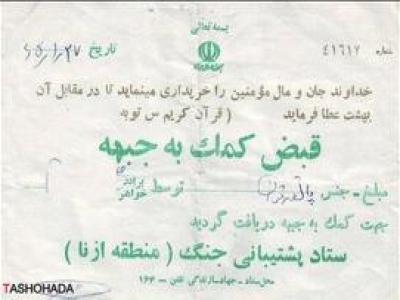 بسمه تعالی
شماره ۴۱۶۱۲
تاریخ ۶۵/۱/۲۷
خداوند جان و مال مؤمنین را خریداری مینماید تا در مقابل آن
بهشت عطا فرماید ( قرآن کریم س توبه
قبض کمک به جبهه
مبلغ - جنس توسط برادر خواهر
جهت کمک به جبهه دریافت گردید
ستاد پشتیبانی جنگ ( منطقه ازنا )
محل ستاد - جهادسازندگی تلفن - ۱۶۳
TASHOHADA